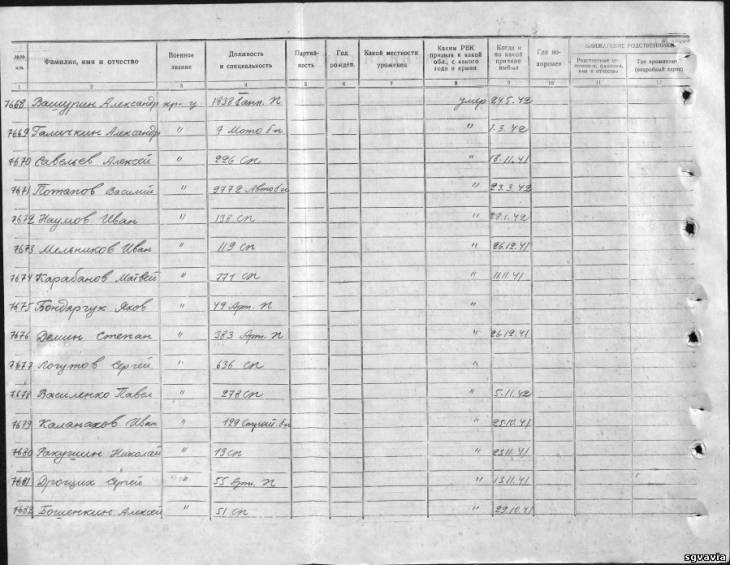 БЛИЖАЙШИЕ РОДСТВЕННИКИ
№№ п.п. Фамилия, имя и отчество Военное звание Должность и специальность Партийность Год рожден. Какой местности уроженец Каким РВК призван и какой обл., с какого года в армии Когда и по какой причине выбыл Где похоронен Где проживают (подробный адрес)
1 2 3 4 5 6 7 8 9 10 11
7668 Вашурин Александр кр-ц 1938 п умер 24.5.42
7669 Галичкин Александр " 9 Мото бн " 1.3.42
7670 Савельев Алексей " 226 сп " 18.11.41
7671 Потапов Василий " 2772 Автобн " 23.3.42
7672 Наумов Иван " 198 сп " 1.42
7673 Мельников Иван " 119 сп " 26.12.41
7674 Карабанов Матвей " 771 сп " 11.11.41
7675 Бондарчук Яков " 49 Арт. п "
7676 Демин Степан " 383 Арт. п " 26.12.41
7677 Логутов Сергей " 636 сп "
7678 Василенко Павел " 278 сп " 5.11.42
7679 Иван " 129 бн " 25.10.41
7680 Ракушин Николай " 19 сп " 11.41
7681 Дрощих Сергей " 55 Арт. п " 13.11.41
7682 Башенкин Алексей " 51 сп " 29.10.41
sgvavia